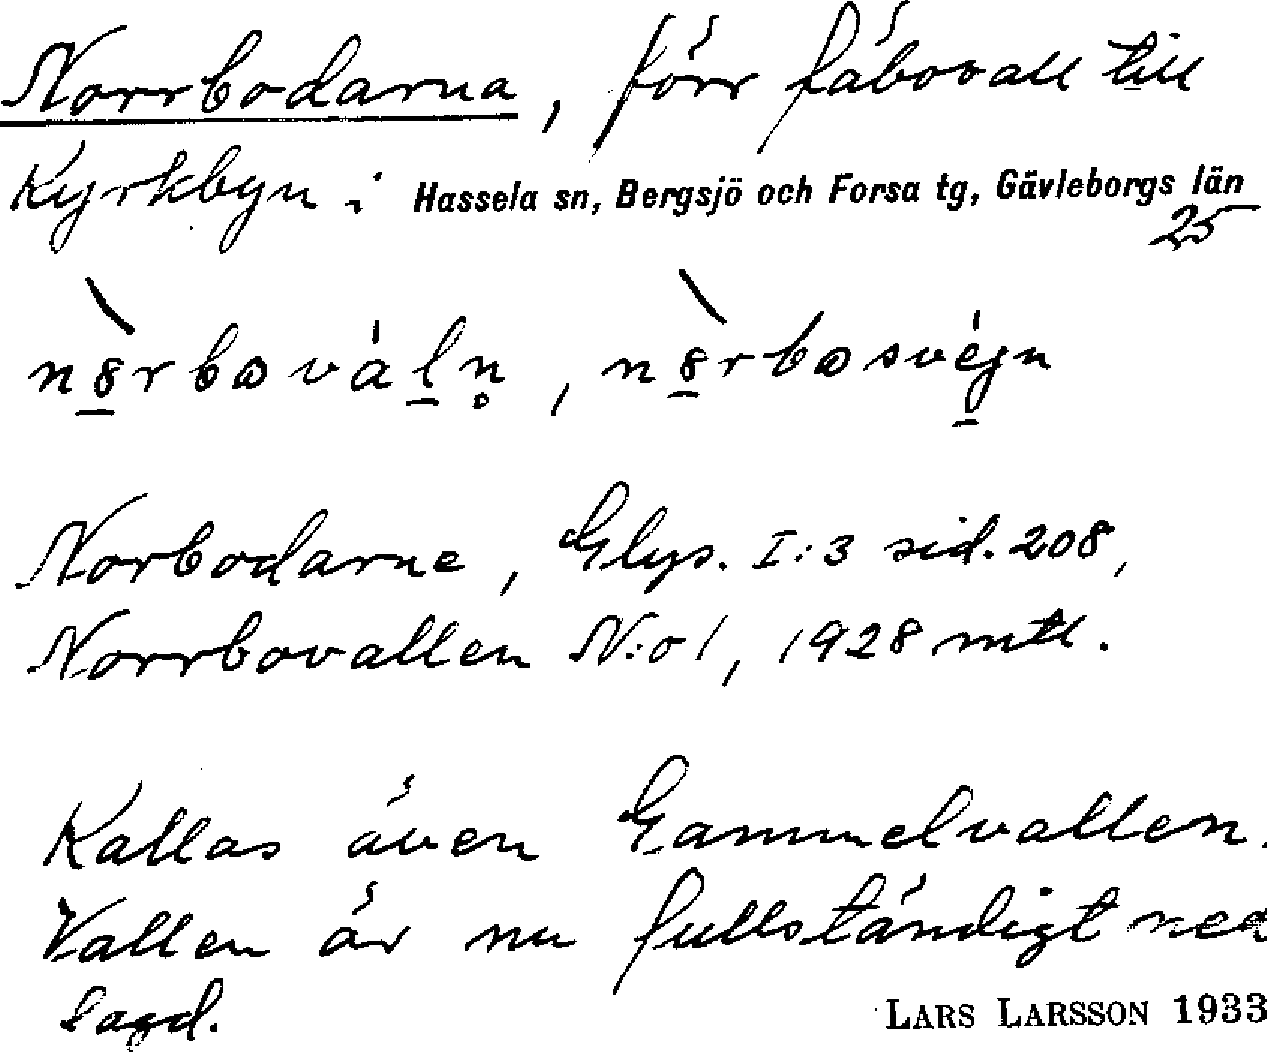 Norrbodarna, förr fäbovall till
Kyrkbyn i Hassela sn, Bergsjö och Forsa tg, Gävleborgs län
25
Norbodarne, Glys. I:3 sid. 208,
Norrbovallen N:o 1, 1928 mtl.
Kallas även Gammelvallen.
Vallen är nu fullständigt ned
lagd.
LARS LARSSON 1933